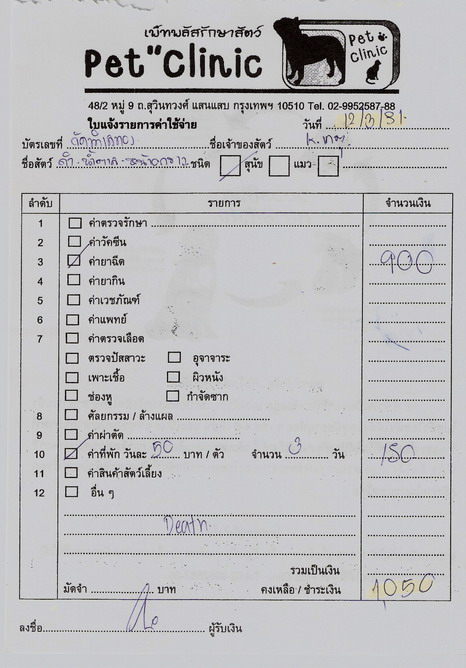 เพ็ทพลัสรักษาสัตว์
Pet"Clinic
Pet
Clinic
48/2 หมู่ 9 ถ.สุวินทวงศ์ แสนแสบ กรุงเทพฯ 10510 Tel. 02-9952587-88
ใบแจ้งรายการค่าใช้จ่าย วันที่ 12/3/51
บัตรเลขที่ ชื่อเจ้าของสัตว์
ชื่อสัตว์ ชนิด สุนัข แมว
ลำดับ รายการ จำนวนเงิน
1 ค่าตรวจรักษา
2 ค่าวัคซีน
3 ค่ายาฉีด 900
4 ค่ายากิน
5 ค่าเวชภัณฑ์
6 ค่าแพทย์
7 ค่าตรวจเลือด
ตรวจปัสสาวะ อุจจาระ
เพาะเชื้อ ผิวหนัง
ช่องหู กำจัดซาก
8 ศัลยกรรม / ล้างแผล
9 ค่าผ่าตัด
10 ค่าที่พัก วันละ 50 บาท / ตัว จำนวน 3 วัน 150
11 ค่าสินค้าสัตว์เลี้ยง
12 อื่น ๆ
Death
รวมเป็นเงิน
มัดจำ บาท คงเหลือ / ชำระเงิน 1050
ลงชื่อ ผู้รับเงิน